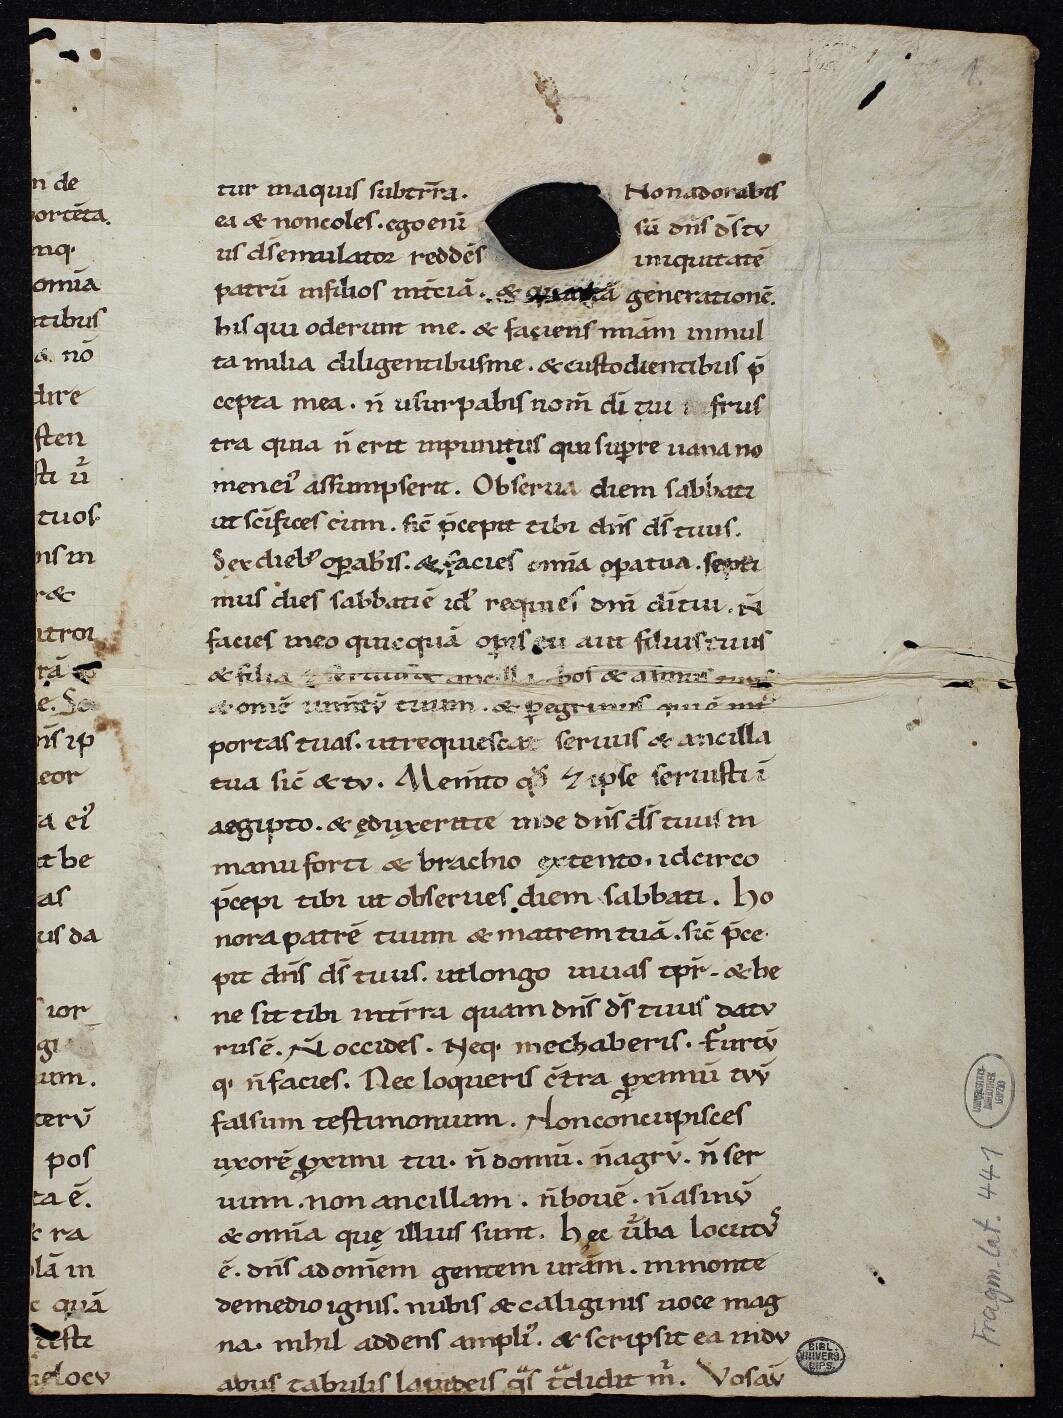 n de
portēta.
mq·
omīa
ntibus
& nō
dire
sten
sti ū
tuos
ns in
r&
ntroi
rā
e. Se
n̄s ip
eor
a ei᾿
it be
as
us da
ior
gi
um.
terū
pos
ta ē.
& ra
lā in
c quā
testi
aelocu
tur in aquis sub tr̄ra. Non adorabis
ea & non coles. ego enī sū dn̄s ds̄ tu
us ds̄ emulator reddēs iniquitatē
patrū in filios in t̄ciā. & quartā generationē.
his qui oderunt me. & faciens mīam in mul
ta milia diligentibus me. & custodientibus p̄
cepta mea. n̄ usurpabis nom̄ dī tui frus
tra quia n̄ erit inpunitus qui supre uana no
men ei᾿ assumpserit. Obserua diem sabbati
ut sc̄ifices eum. sic̄ p̄cepit tibi dn̄s ds̄ tuus.
Sex dieb᾿ op̄abis. & facies omīa op̄a tua. septi
mus dies sabbati ē id᾿ requies dn̄i dī tui. n̄
facies in eo quicquā op̄is tu aut filius tuus
& filia seruus & ancilla bos & asinus tuus
& omē ium̄tū tuum. & p̄egrinus qui ē int᾿
portas tuas. ut requiescat seruus & ancilla
tua sic̄ & tu. Mem̄to qd̄ & ipse seruisti ī
aegipto. & eduxerit te inde dn̄s ds̄ tuus in
manu forti & brachio extento. idcirco
p̄cepi tibi ut obserues diem sabbati. Ho
nora patrē tuum & matrem tuā. sic̄ p̄ce
pit dn̄s ds̄ tuus. ut longo uiuas tp̄r. & be
ne sit tibi in tr̄ra quam dn̄s ds̄ tuus datu
rus ē. N̄ occides. Neq· mechaberis. Furtū
q· n̄ facies. Nec loqueris c̄tra p̄ximū tuū
falsum testimonium. Non concupisces
uxorē p̄ximi tui. n̄ domū. n̄ agrū. n̄ ser
uum. non ancillam. n̄ bouē. n̄ asinū
& omīa quę illius sunt. Hęc ūba locutus
ē. dn̄s ad om̄em gentem ur̄am. in monte
de medio ignis. nubis & caliginis uoce mag
na. nihil addens ampli᾿. & scripsit ea in du
abus tabulis lapideis q̄s t̄didit m̄. Vos aū
1.
UNIVERSITÄTS
BIBLIOTHEK
LEIPZIG
Fragm. lat. 441
BIBL.
VNIVERS.
LIPS.